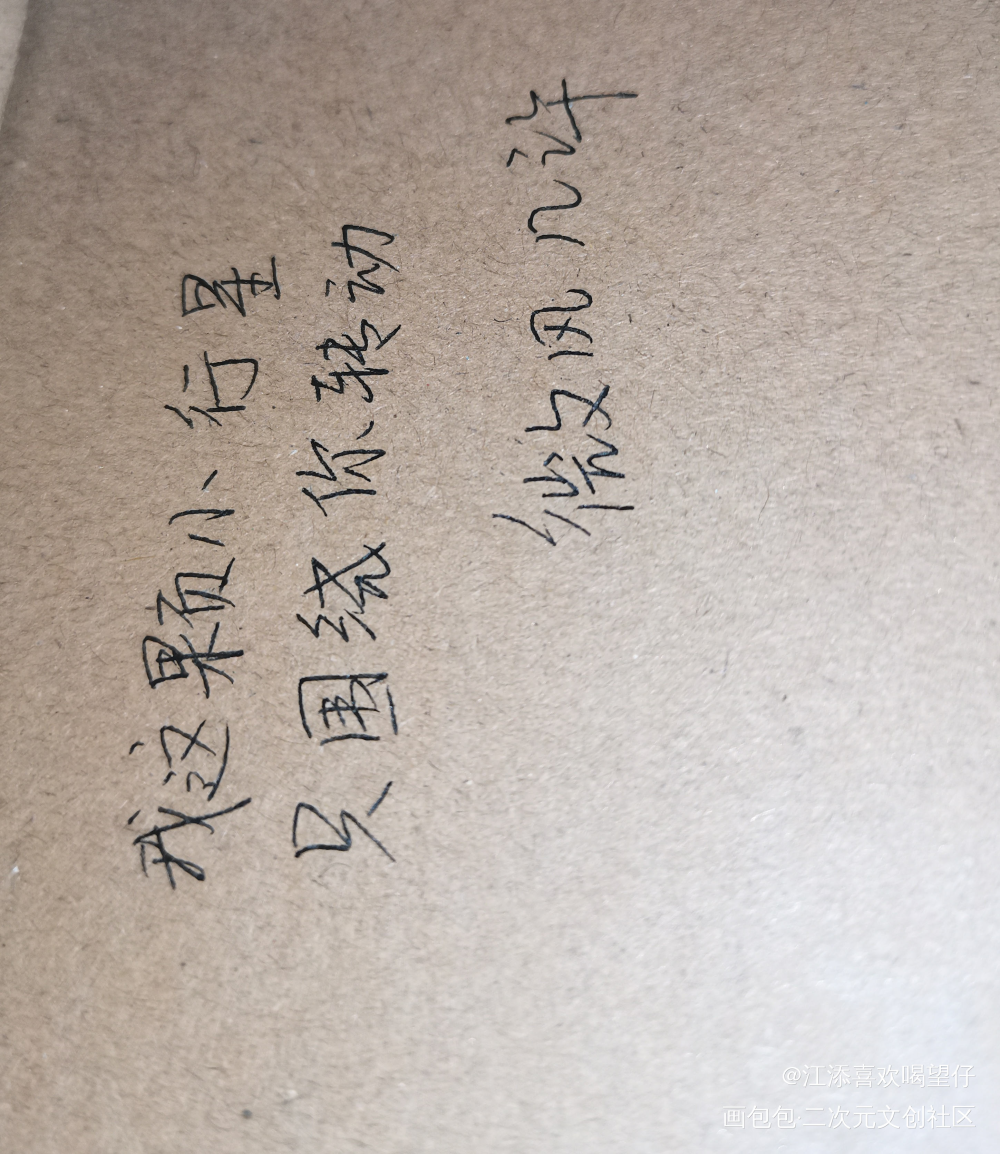 我这颗小行星
只围绕你转动
微风几许
@江添喜欢喝望仔
画包包·二次元文创社区